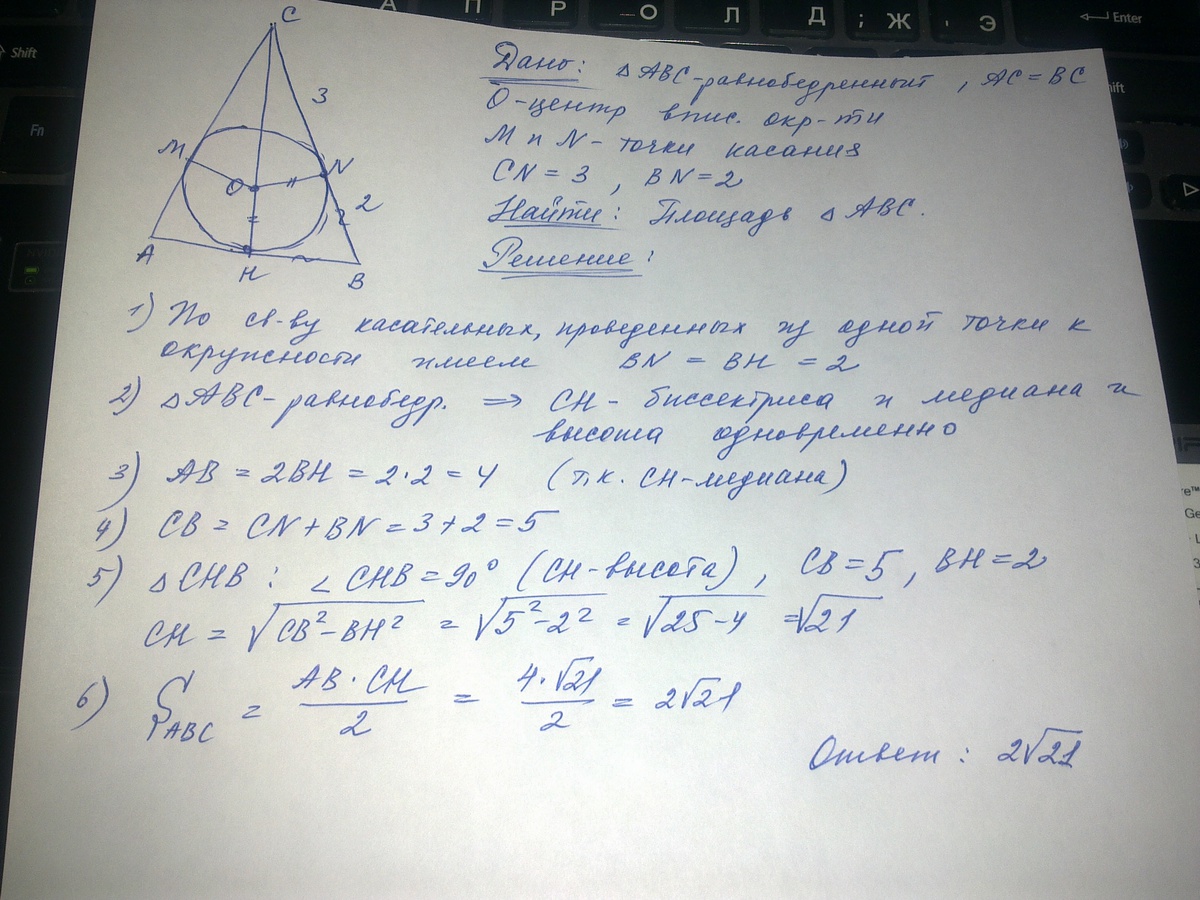 А П Р О Л Д ; Ж ' Э Enter
Shift
Fn
C
3
M
N
O
2
2
A
H
B
Дано: △ABC-равнобедренный, AC=BC
O-центр впис. окр-ти
M и N - точки касания
CN=3, BN=2
Найти: Площадь △ABC.
Решение:
1) По св-ву касательных, проведенных из одной точки к
окружности имеем BN = BH = 2
2) △ABC-равнобедр. ⇒ CH - биссектриса и медиана и
высота одновременно
3) AB = 2BH = 2·2 = 4 (т.к. CH-медиана)
4) CB = CN+BN = 3+2 = 5
5) △CHB: ∠CHB = 90° (CH-высота), CB=5, BH=2
CH = √(CB²-BH²) = √(5²-2²) = √(25-4) = √21
6) S ABC = AB·CH / 2 = 4·√21 / 2 = 2√21
Ответ: 2√21